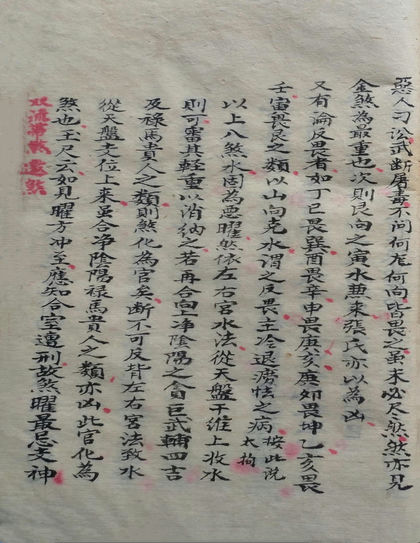 惡人刁訟武斷屠毒不問何龙何向皆畏之虽未必尽然然亦見
金煞為最重也次則艮向之寅水與来張氏亦以為凶
又有論反畏者如丁巳畏巽酉畏辛申畏庚亥庚夘畏坤乙亥畏
壬寅畏艮之類以山向克水謂之反畏主冷退痨怯之病按此说太拘
以上八煞水固為悪曜然依左右宮水法從天盤干维上收水
則可審其輕重以消纳之若再合向上净陰陽之貪巨武輔四吉
及禄馬貴人之類則煞化為官矣断不可反背左右宮法致水
從天盤支位上来虽合净陰陽禄馬貴人之類亦凶此官化為
煞也玉尺云如見曜方冲至應知合室遭刑故煞曜最忌支神
双流带煞